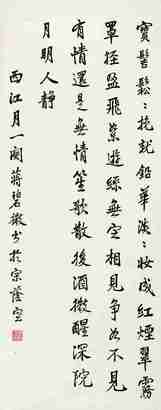 寶髻鬆〻挽就鉛華淡〻妝成紅煙翠霧
罩輕盈飛絮遊絲無定相見爭如不見
有情還是無情笙歌散後酒微醒深院
月明人靜
西江月一闋蔣碧微書於宗蔭室